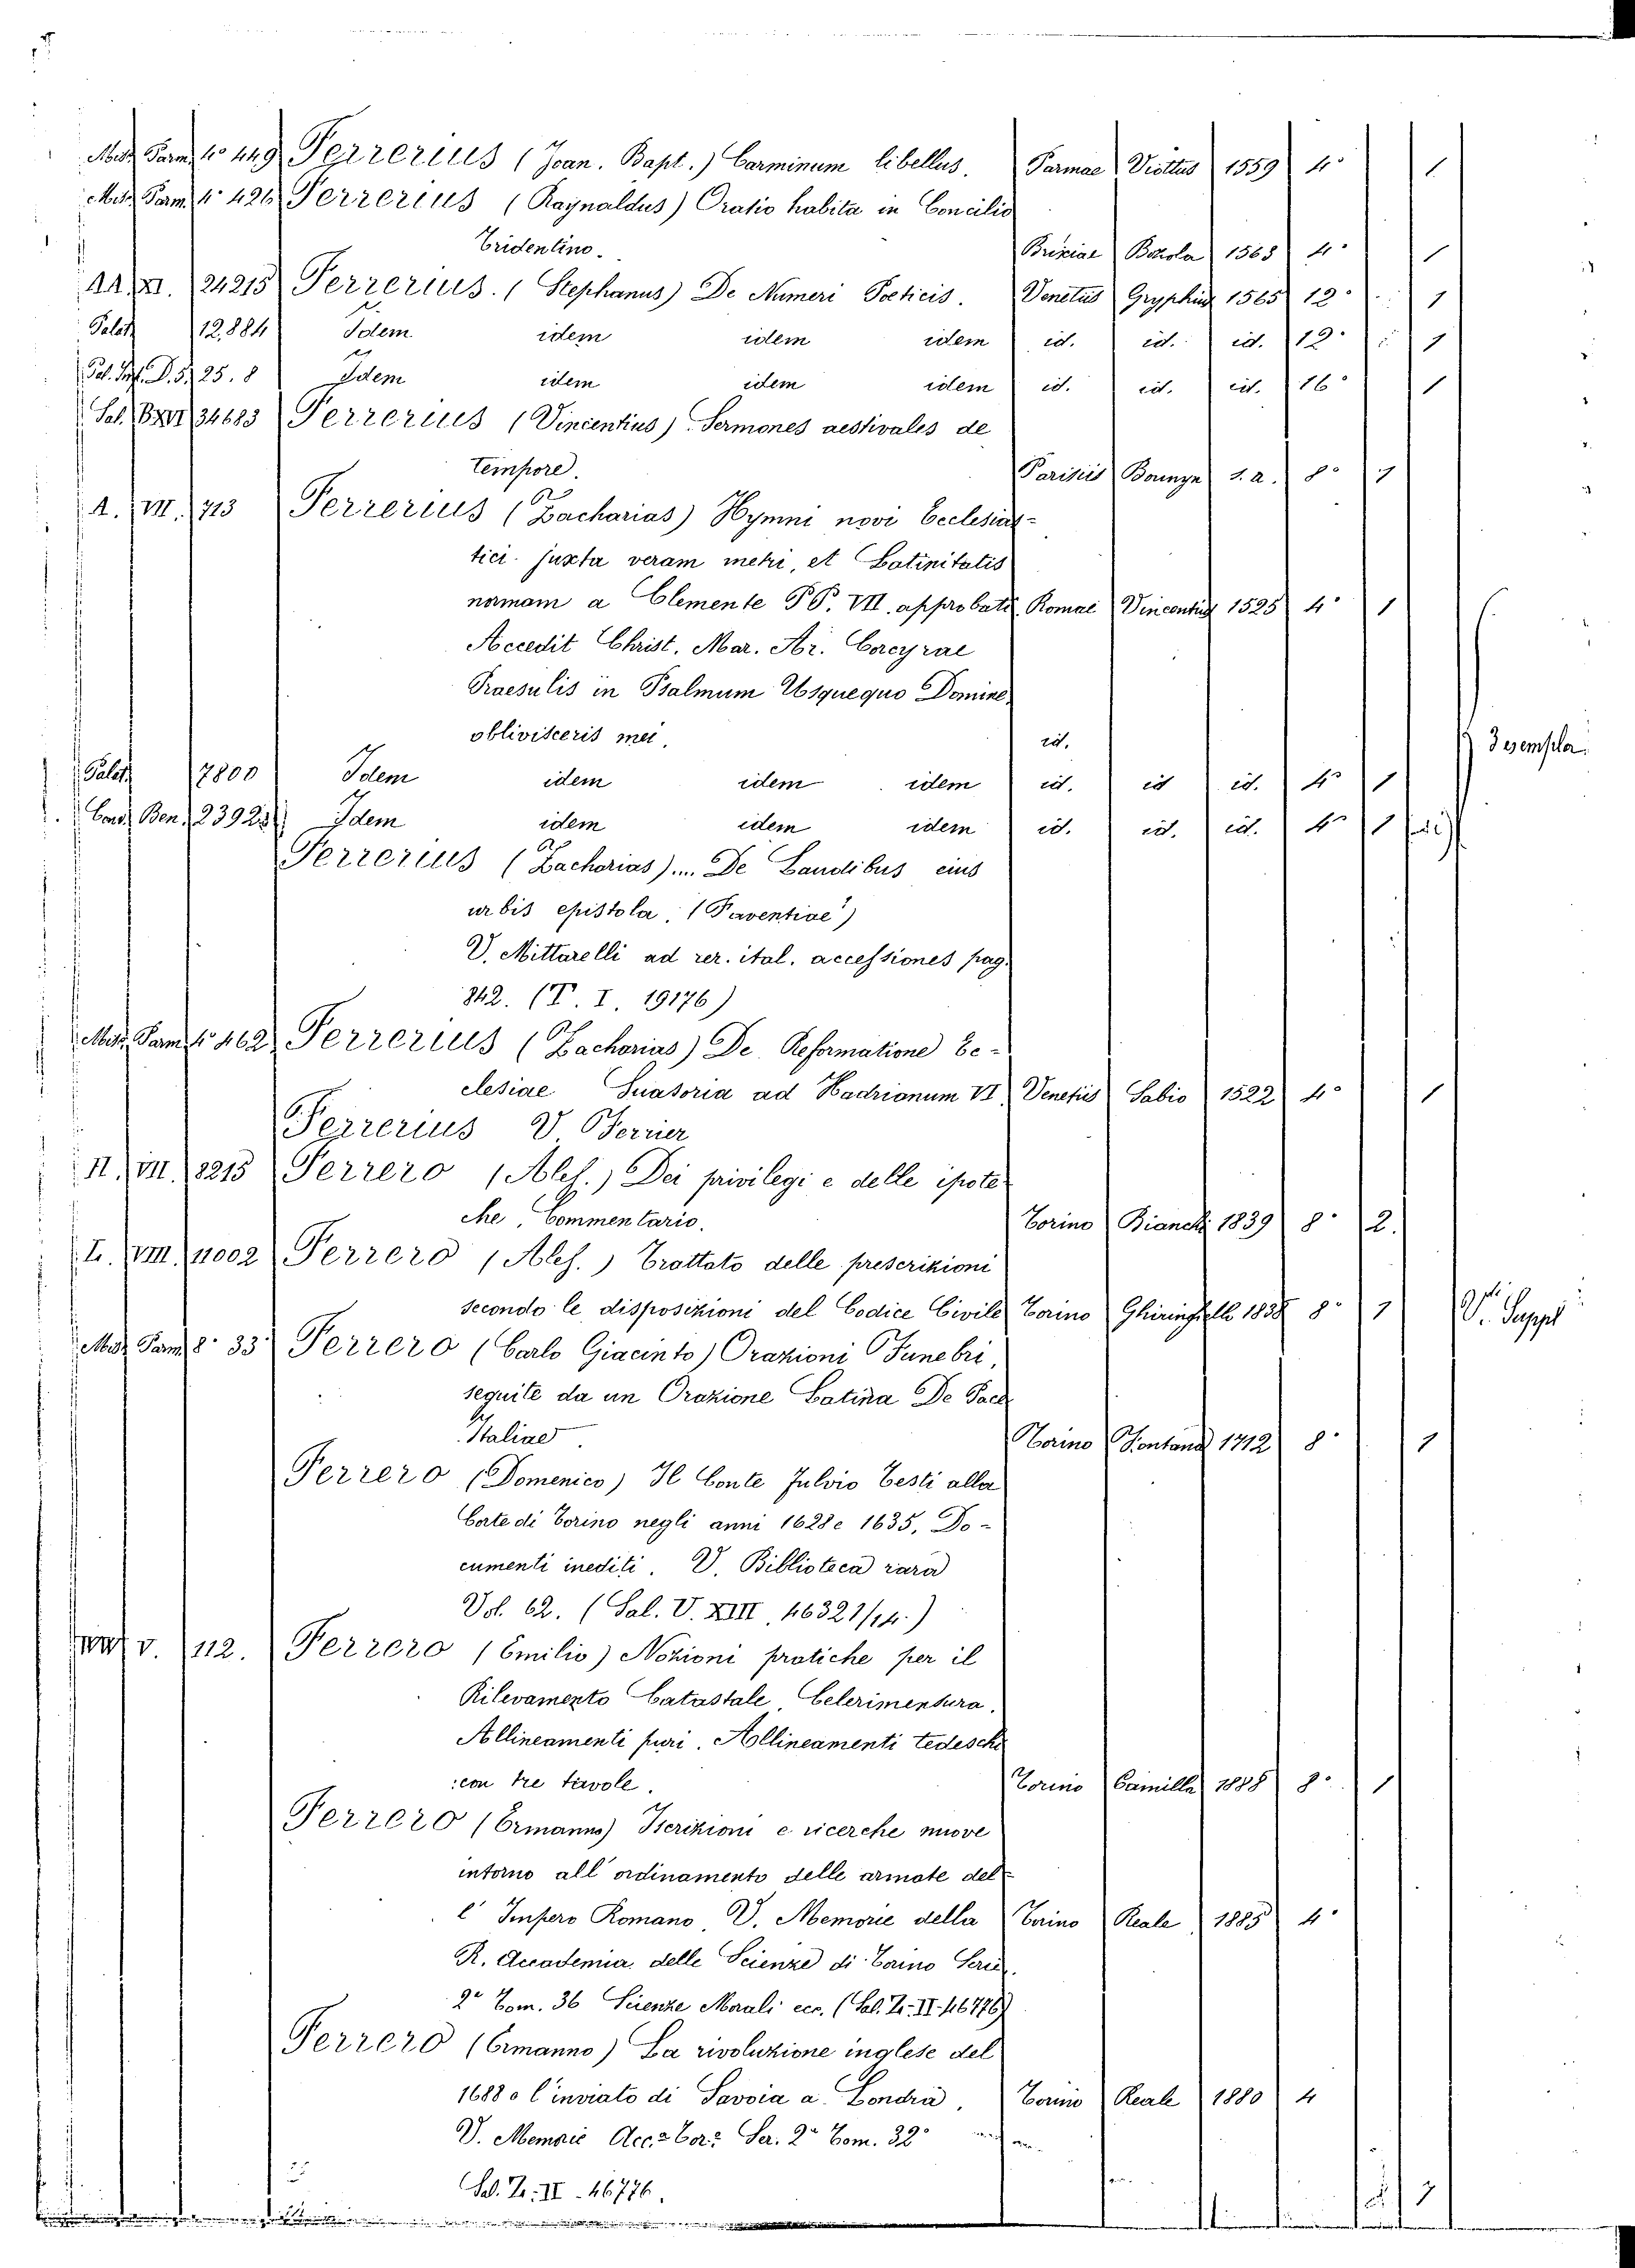 Misc. Parm. 4° 449 Ferrerius (Joan. Bapt.) Carminum libellus. Parmae Viottus 1559 4° 1
Misc. Parm. 4° 426 Ferrerius (Raynaldus) Oratio habita in Concilio
Tridentino. Brixiae Bozola 1563 4° 1
AA. XI. 24215 Ferrerius. (Stephanus) De Numeri Poeticis. Venetiis Gryphius 1565 12° 1
Palat. 12,884 Idem idem idem idem id. id. id. 12° 1
Pal. Inf. D. 5. 25. 8 Idem idem idem idem id. id. id. 16° 1
Sal. XXVI 34683 Ferrerius (Vincentius) Sermones aestivales de
tempore. Parisiis s.a. 8° 1
A. VII. 713 Ferrerius (Zacharias) Hymni novi Ecclesias-
tici juxta veram metri, et Latinitatis
normam a Clemente PP. VII. approbati Romae Vincentius 1525 4° 1
Accedit Christ. Mar. Ar. Corcyrae
Praesulis in Psalmum Usquequo Domine
oblivisceris mei. id.
3 esemplar.
Palat. 7800 Idem idem idem idem id. id id. 4° 1
Cond. Ben. 23923 Idem idem idem idem id. id. id. 4° 1
Ferrerius (Zacharias).... De Laudibus eius
urbis epistola. (Faventiae)
V. Mittarelli ad rer. ital. accessiones pag.
842. (T. I. 19176)
Misc. Parm. 4° 462 Ferrerius (Zacharias) De Reformatione Ec-
clesiae Suasoria ad Hadrianum VI Venetiis Sabio 1522 4° 1
Ferrerius V. Ferrier
II. VIII. 8215 Ferrero (Aless.) Dei privilegi e delle ipote-
che, Commentario. Torino Bianchi 1839 8° 2.
I. VIII. 11002 Ferrero (Aless.) Trattato delle prescrizioni
secondo le disposizioni del Codice Civile Torino Ghiringhello 1838 8° 1 V. Suppl
Misc. Parm. 8° 33 Ferrero (Carlo Giacinto) Orazioni Funebri,
seguite da un Orazione Latina De Pace
Italiae. Torino Fontana 1712 8° 1
Ferrero (Domenico) Il Conte Fulvio Testi alla
Corte di Torino negli anni 1628 e 1635, Do-
cumenti inediti. V. Biblioteca rara
Vol. 62. (Sal. V. XIII 46321/14.)
V. 112. Ferrero (Emilio) Nozioni pratiche per il
Rilevamento Catastale, Celerimensura.
Allineamenti puri. Allineamenti tedeschi
con tre tavole. Torino Camilla 1888 8° 1
Ferrero (Ermanno) Iscrizioni e ricerche nuove
intorno all' ordinamento delle armate del-
l' Impero Romano, V. Memorie della Torino Reale 1885 4°
R. Accademia delle Scienze di Torino Serie
2ª Tom. 36 Scienze Morali ecc. (Sal. Tr. II. 46776)
Ferrero (Ermanno) La rivoluzione inglese del
1688 e l'inviato di Savoia a Londra, Torino Reale 1880 4
V. Memorie Acc. Tor. Ser. 2ª Tom. 32°
Sal. Tr. II. 46776.